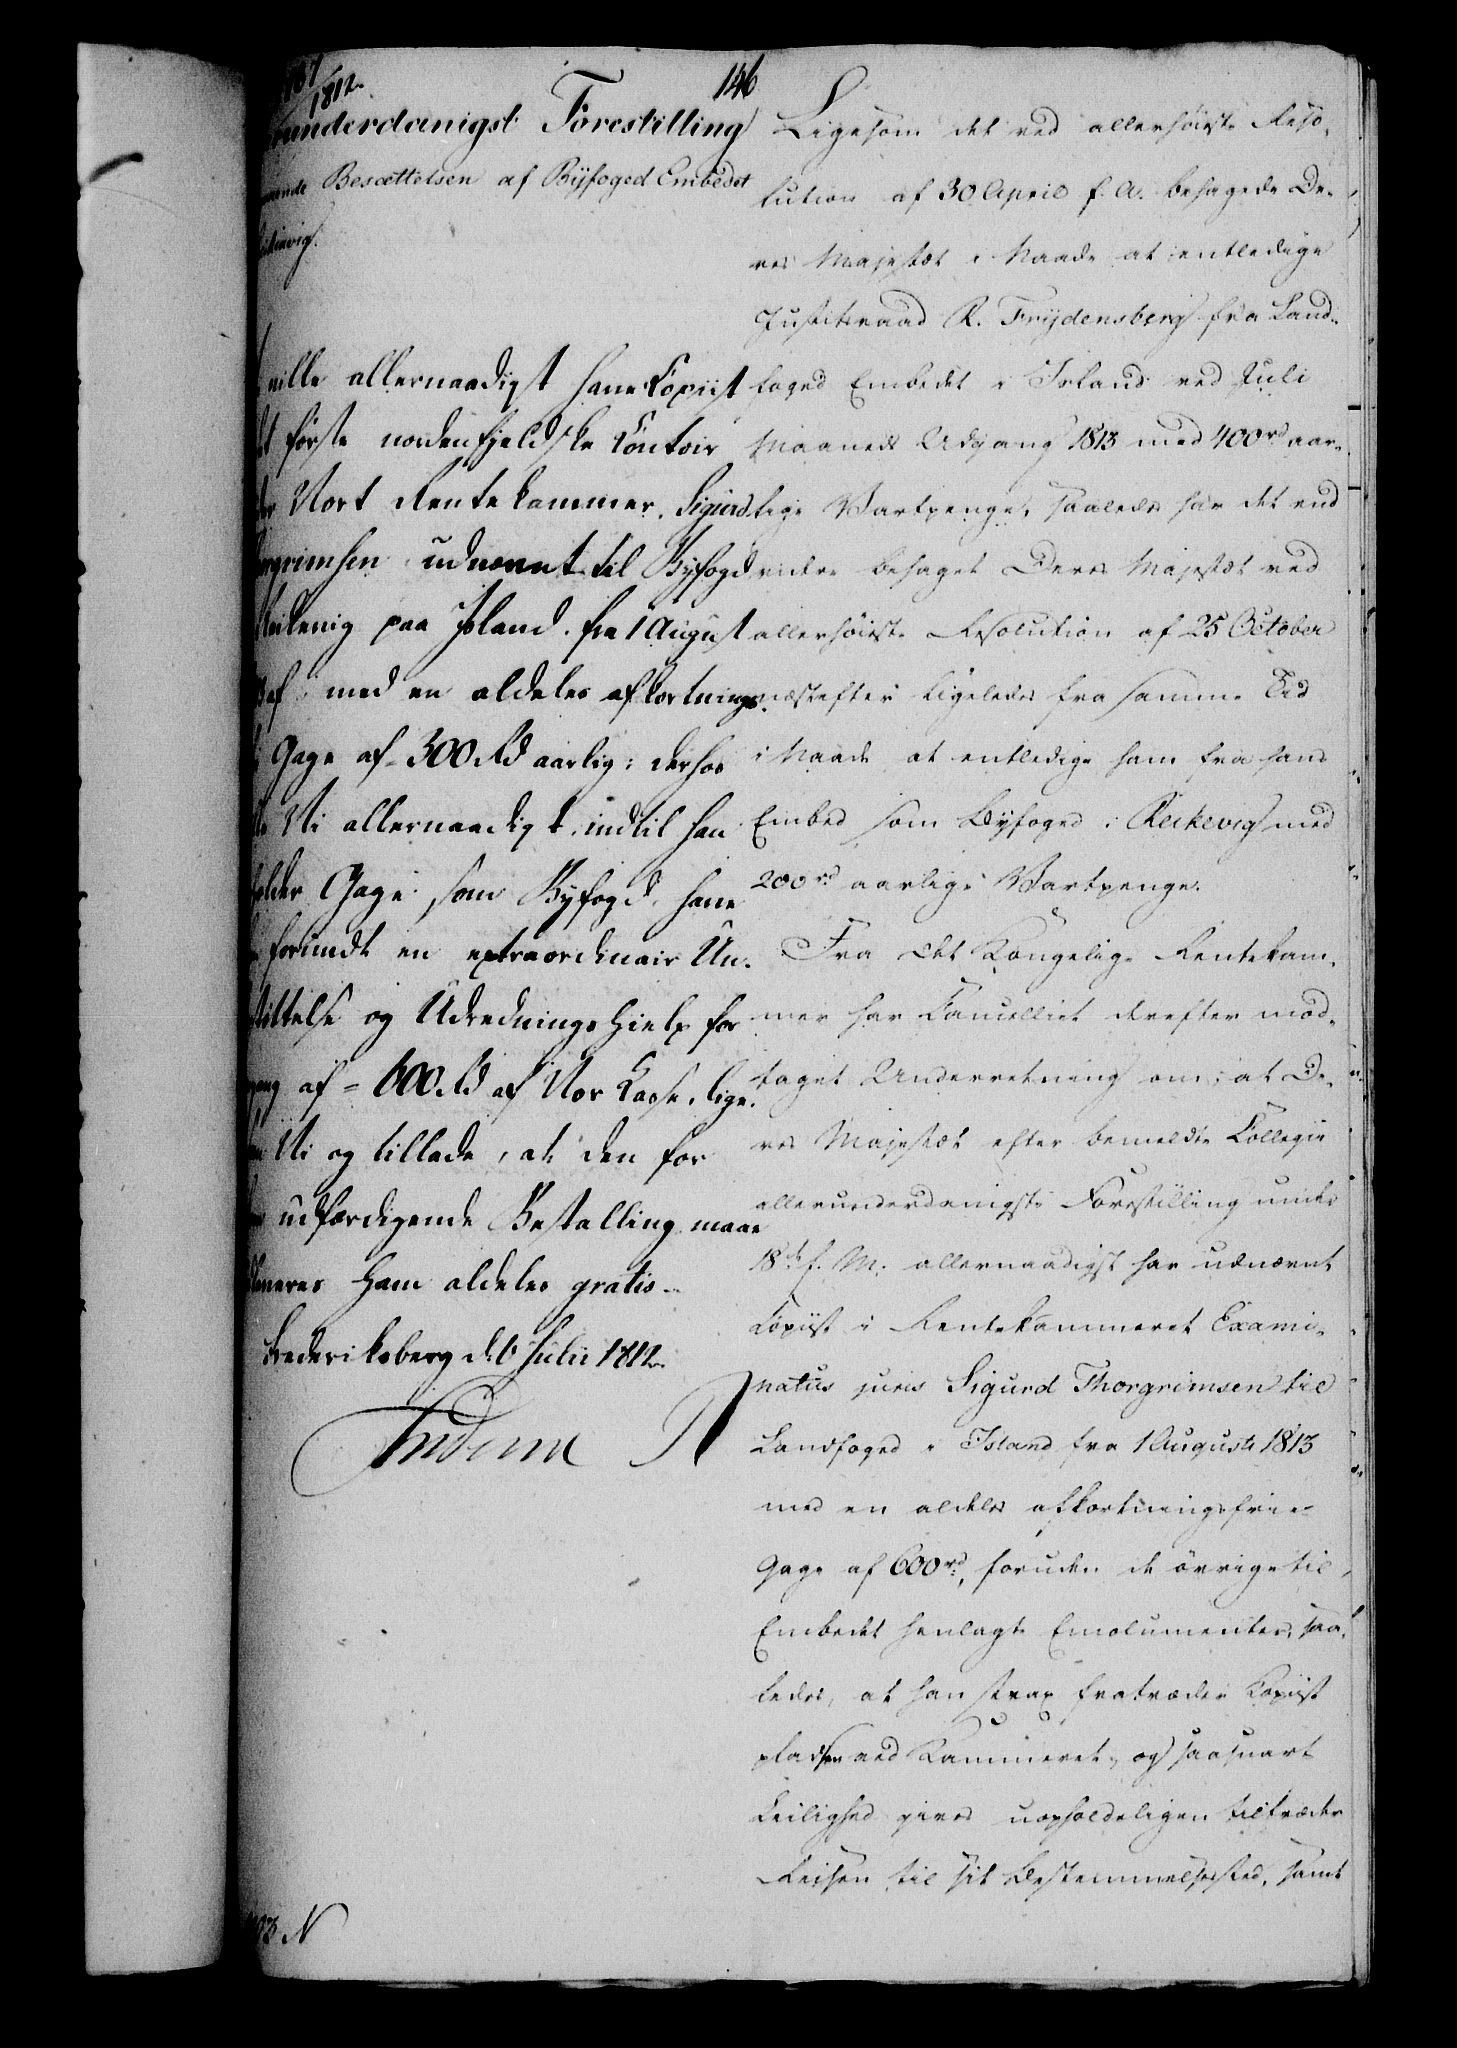 1812.
146
underdanigst Forestilling
Besættelsen af Byfoged Embedet
ville allernaadigst have Copiist
første nordenfjeldske Contoir
Vort Rentekammer, Sigurd
grimsen udnævnt til Byfoged
paa Island fra 1 August
af med en aldeles afkortnings
Gage af 300 Rd aarlig; derhos
Vi allernaadigst, indtil han
Gage som Byfoged, have
forundt en extraordinair Un-
stittelse og Udredningshielp for
af = 600 Rd af Vor Casse, lige-
Vi og tillade, at den for
udfærdigende Bestalling maae
meres ham aldeles gratis.
Frederiksberg d. 6 Julii 1812.
Frederik R
N
Ligesom det ved allerhöieste Reso-
lution af 30 April f. A. behagede De-
res Majestæt i Naade at entledige
Justitsraad R. Frydensberg fra Land-
foged Embedet i Island ved Juli
Maaneds Udgang 1813 med 400 rd aar-
lige Vartpenge, saaledes har det end
videre behaget Deres Majestæt ved
allerhöieste Resolution af 25 October
næstefter ligeledes fra samme Tid
i Naade at entledige ham fra hans
Embed som Byfoged i Reikevig med
200 rd aarlige Vartpenge.
Fra det Kongelige Rentekam-
mer har Cancelliet derefter mod-
taget Underretning om, at De-
res Majestæt efter bemeldte Collegii
allerunderdanigste Forestilling under
18de f. M. allernaadigst har udnævnt
Copiist i Rentekammeret Exami-
natus juris Sigurd Thorgrimsen til
Landfoged i Island fra 1 August 1813
med en aldeles afkortningsfrie
Gage af 600 rd, foruden de övrige til
Embedet henlagte Emolumenter, saa-
ledes, at han strax fratræder Copiist
pladsen ved Kammeret, og saasnart
Leilighed gives uopholdeligen tiltræder
Reisen til sit Bestemmelsessted, samt